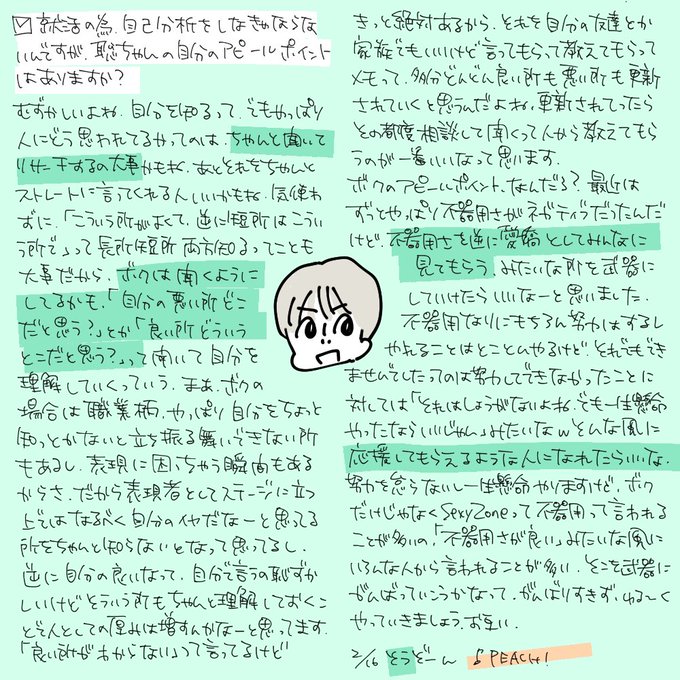 ☑ 就活の為、自己分析をしなきゃならな
いんですが、聡ちゃんの自分のアピールポイント
はありますか?
むずかしいよね、自分を知るって、でもやっぱり
人にどう思われてるかってのは、ちゃんと聞いて
リサーチするの大事かもね、あとそれをちゃんと
ストレートに言ってくれる人いいかもね、気使わ
ずに、「こういう所がよくて、逆に短所はこうい
う所で」って長所短所両方知るってことも
大事だから、ボクは聞くように
してるかも、「自分の悪い所どこ
だと思う?」とか「良い所どういう
とこだと思う?」って聞いて自分を
理解していくっていう、まぁ、ボクの
場合は職業柄、やっぱり自分をちょっと
知っとかないと立ち振る舞いできない所
もあるし、表現に困っちゃう瞬間もある
からさ、だから表現者としてステージに立つ
上ではなるべく自分のイヤだなーと思ってる
所をちゃんと知らないとなって思ってるし、
逆に自分の良いなって、自分で言うの恥ずか
しいけどそういう所もちゃんと理解しておくこ
とで人としての厚みは増すんかなーと思ってます、
「良い所がわからない」って言ってるけど
きっと絶対あるから、それを自分の友達とか
家族でもいいけど言ってもらって教えてもらって
メモって、多分どんどん良い所も悪い所も更新
されていくと思うんだよね、更新されてったら
その都度相談して聞くって人から教えてもら
うのが一番いいなって思います、
ボクのアピールポイント、なんだろ?最近は
ずっとやっぱり不器用さがネガティブだったんだ
けど、不器用さを逆に愛嬌としてみんなに
見てもらう、みたいな所を武器に
していけたらいいなーと思いました、
不器用なりにもちろん努力はするし
やれることはとことんやるけど、それでもでき
ませんでしたってのは努力してできなかったことに
対しては「それはしょうがないよね、でも一生懸命
やったならいいじゃん」みたいなwそんな風に
応援してもらえるような人になれたらいいな、
努力を怠らないし一生懸命やりますけど、ボク
だけじゃなくSexyZoneって不器用って言われる
ことが多いの、「不器用さが良い」みたいな風に
いろんな人から言われることが多い、そこを武器に
がんばっていこうかなって、がんばりすぎず、ゆる〜く
やっていきましょう、お互い、
2/16 そうどーん ♪PEACH!